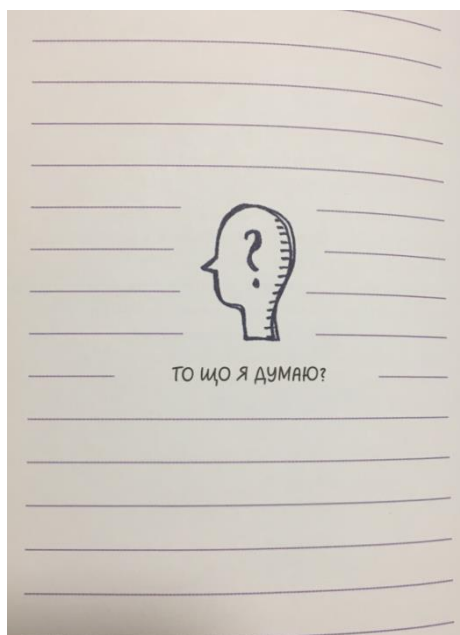 ?
ТО ЩО Я ДУМАЮ?